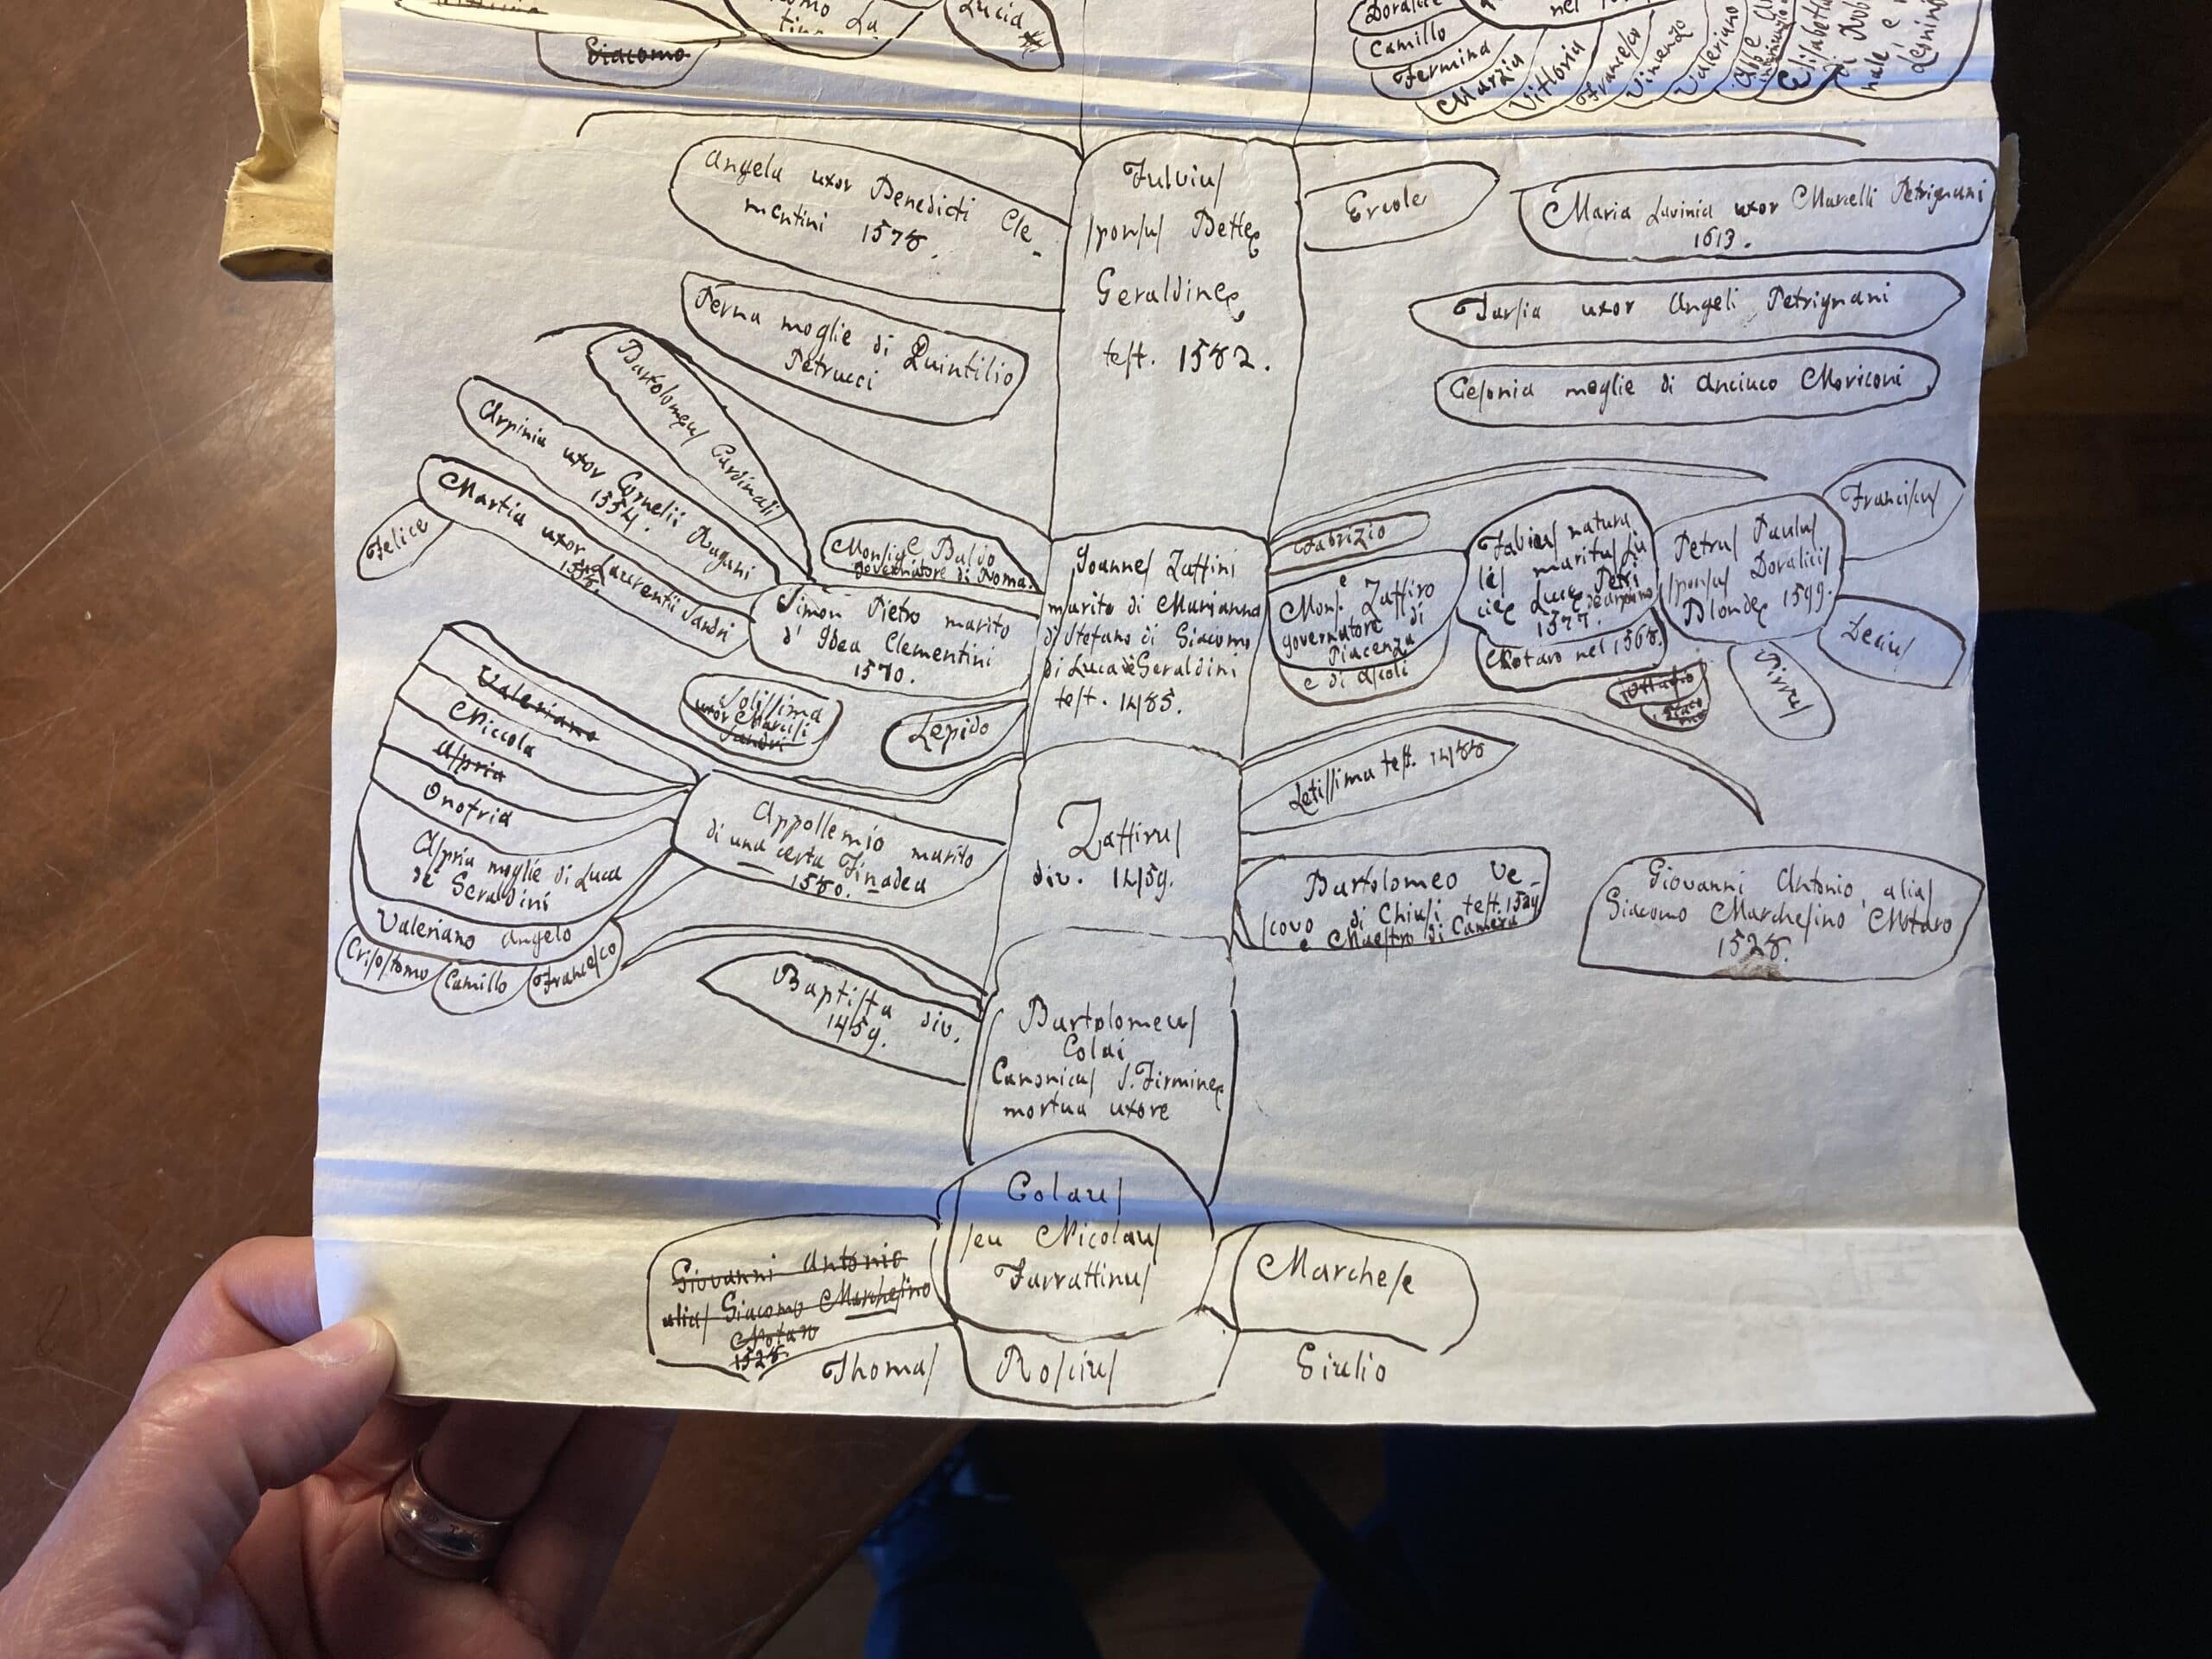 Giacomo
tino
Lucia
Doralice
Camillo
Fermina
Marzia
Vittoria
Francesco
Vincenzo
Valeriano
Angela uxor Benedicti Cle-
mentini 1578.
Fulvius
sponsus Bettę
Geraldinę
test. 1582.
Ercole
Maria Lavinia uxor Marcelli Petrignani
1613.
Perna moglie di Quintilio
Petrucci
Tarsia uxor Angeli Petrignani
Cesonia moglie di Anciuco Moriconi
Bartolomęus Cardinali
Arpinia uxor Cornelii Ragani
1554.
Martia uxor Laurentii Sandri
Felice
Monsig.e Balio
governatore di Roma.
Simon Pietro marito
d' Idea Clementini
1570.
Joannes Zaffini
marito di Marianna
di Stefano di Giacomo
di Luca de Geraldini
test. 1485.
Fabrizio
Mons.e Zaffiro
governatore di
Piacenza
e di Ascoli
Fabius natura
lis maritus Lu
cię Lucę Petri
1577.
Notaro nel 1568.
Petrus Paulus
sponsus Doralicis
Blondę 1599.
Franciscus
Decius
Pirrus
Ottavio
Giaco
mo
Solissima
uxor Marcisi
Sandri
Lepido
Valeriano
Niccola
Aspria
Onofria
Aspria moglie di Luca
de Geraldini
Valeriano Angelo
Crisostomo
Camillo
Francesco
Appollemio marito
di una certa Finadea
1580.
Zaffirus
div. 1459.
Letissima test. 1488
Bartolomeo Ve-
scovo di Chiusi test. 1534
e Maestro di Camera
Giovanni Antonio, alias
Giacomo Marchesino Notaro
1528.
Baptista div.
1459.
Bartolomeus
Colai
Canonicus S. Firminę
mortua uxore
Colaus
seu Nicolaus
Farrattinus
Giovanni Antonio
alias Giacomo Marchesino
Notaro
1528.
Marchese
Thomas
Roscius
Giulio